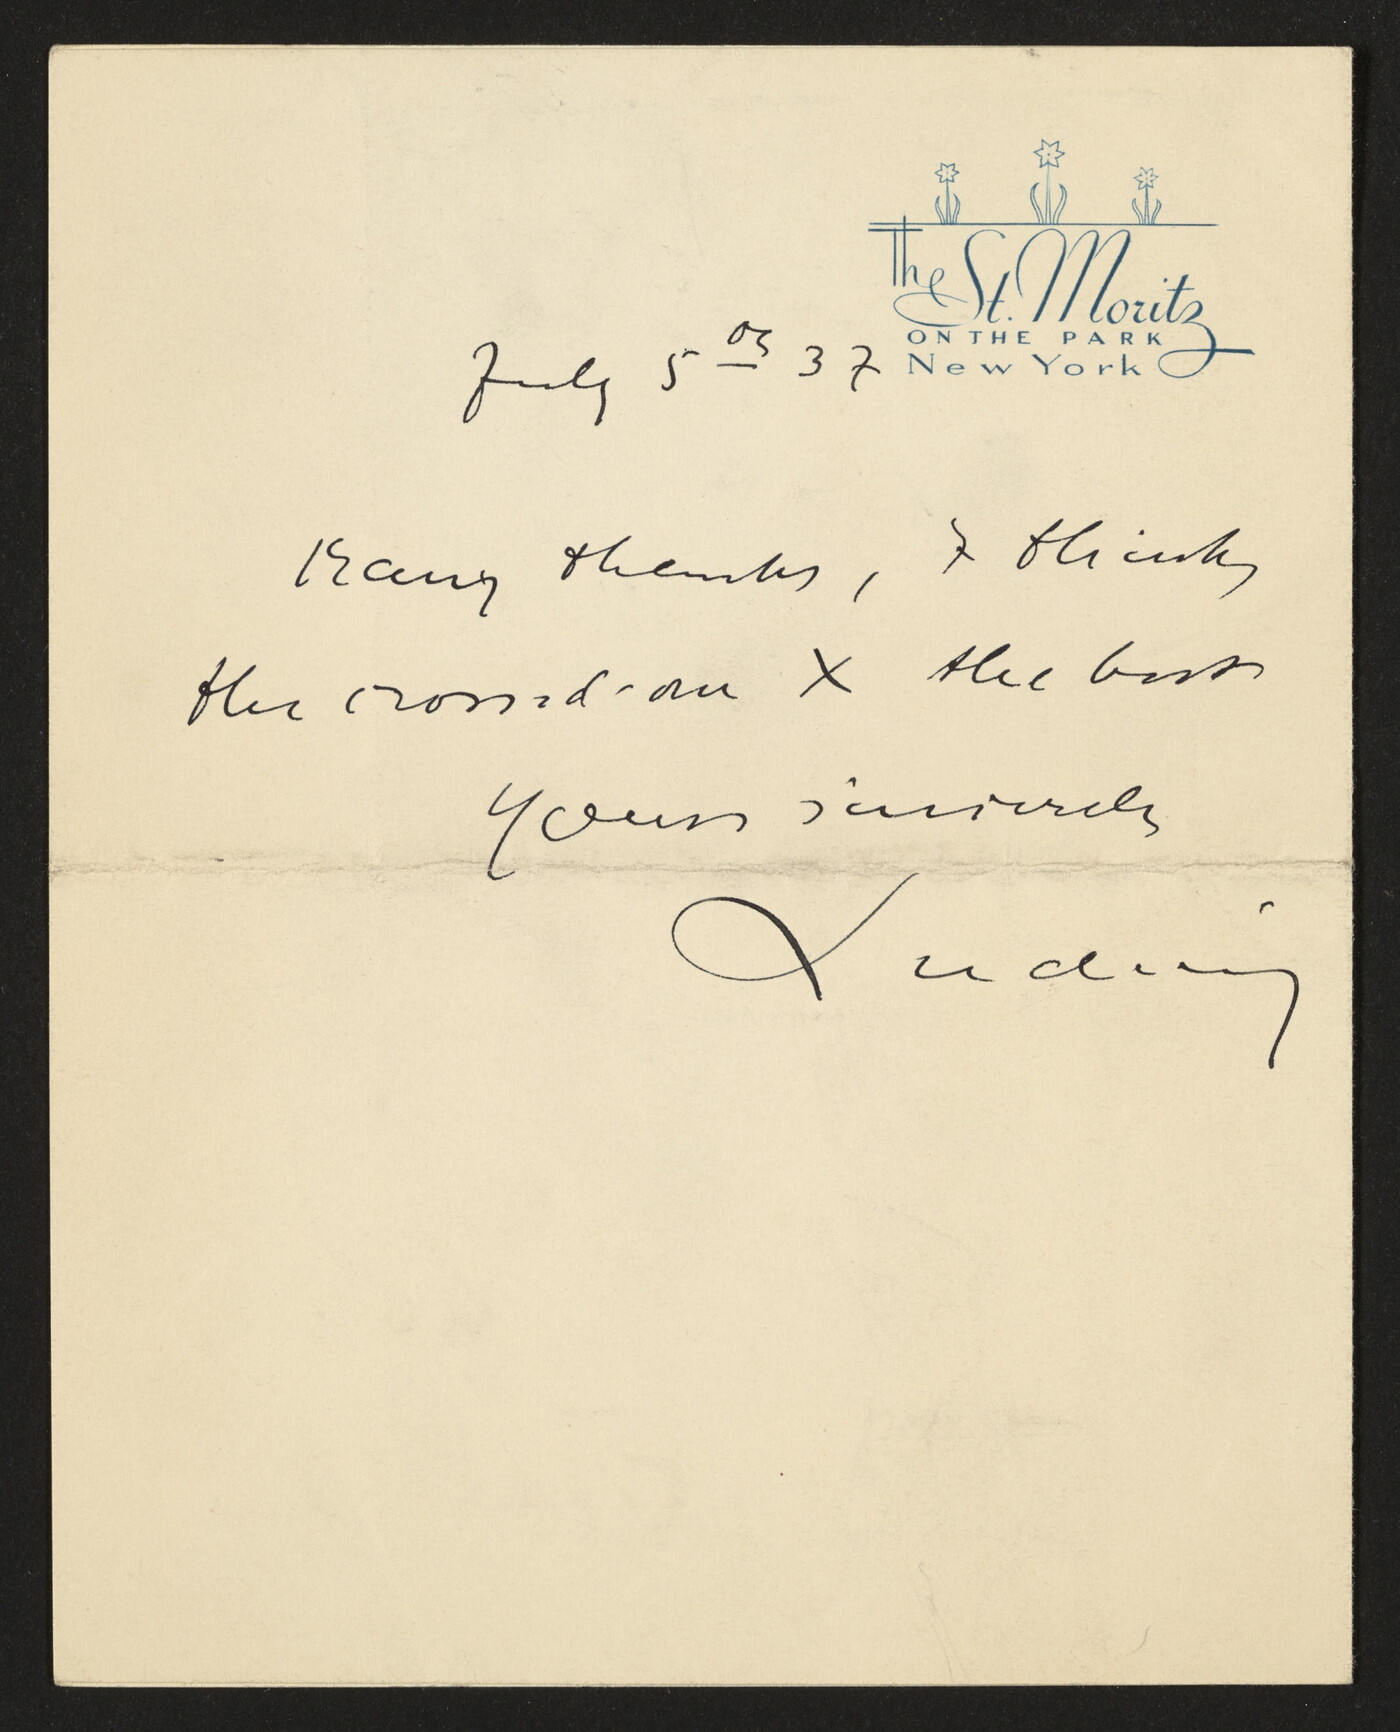 The St. Moritz
ON THE PARK
New York
July 5 37
Many thanks, I think
the crossed-one X the best
Yours sincerely
Ludwig